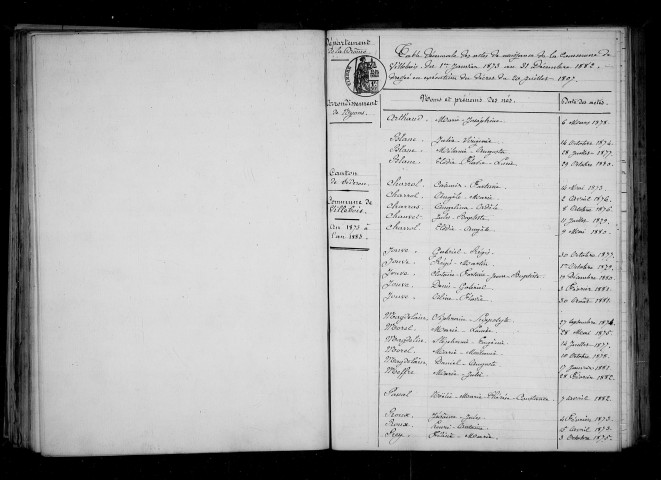 Département
de la Drôme
Arrondissement
de Nyons.
Canton
de Séderon.
Commune de
Villebois.
An 1873 à
l'an 1883.
Table Décennale des actes de naissance de la Commune de
Villebois, du 1er Janvier 1873 au 31 Décembre 1882
dressée en exécution du Décret du 20 Juillet 1807.
Noms et prénoms des nés. Date des actes.
Arthaud. Marie-Joséphine 6 Mars 1878.
Blanc Julie Virginie 14 Octobre 1874.
Blanc Mélanie Auguste 28 Juillet 1877.
Blanc Elodie Flavie Louise 29 Octobre 1880.
Charrol. Casimir Fortuné 14 Mai 1873.
Charrol. Angèle Marie 9 Avril 1876.
Charras Angelina Adèle 8 Octobre 1876.
Chauvet Jules Baptiste 11 Juillet 1879.
Charrol. Elodie Angèle 9 Mai 1880.
Jouve Gabriel Régis 30 Octobre 1877.
Jouve Régis Martin 1er Octobre 1879.
Jouve Fortuné Jean Baptiste 10 Décembre 1880.
Jouve Denis Gabriel 3 Février 1881.
Jouve Flavie 30 Août 1881.
Magdelaine Alphonsin Hippolyte 27 Septembre 1874.
Morel Marie Louise 28 Mai 1875.
Stéphanie Eugénie 14 Juillet 1877.
Morel. Marie 10 Octobre 1878.
Magdelaine Daniel Auguste 17 Janvier 1881.
Moffre Marie Julie 28 Février 1882.
Pascal Marie Constance 9 Avril 1882.
Roux Jules 4 Février 1873.
Roux 5 Avril 1873.
Rey Marie 3 Octobre 1875.